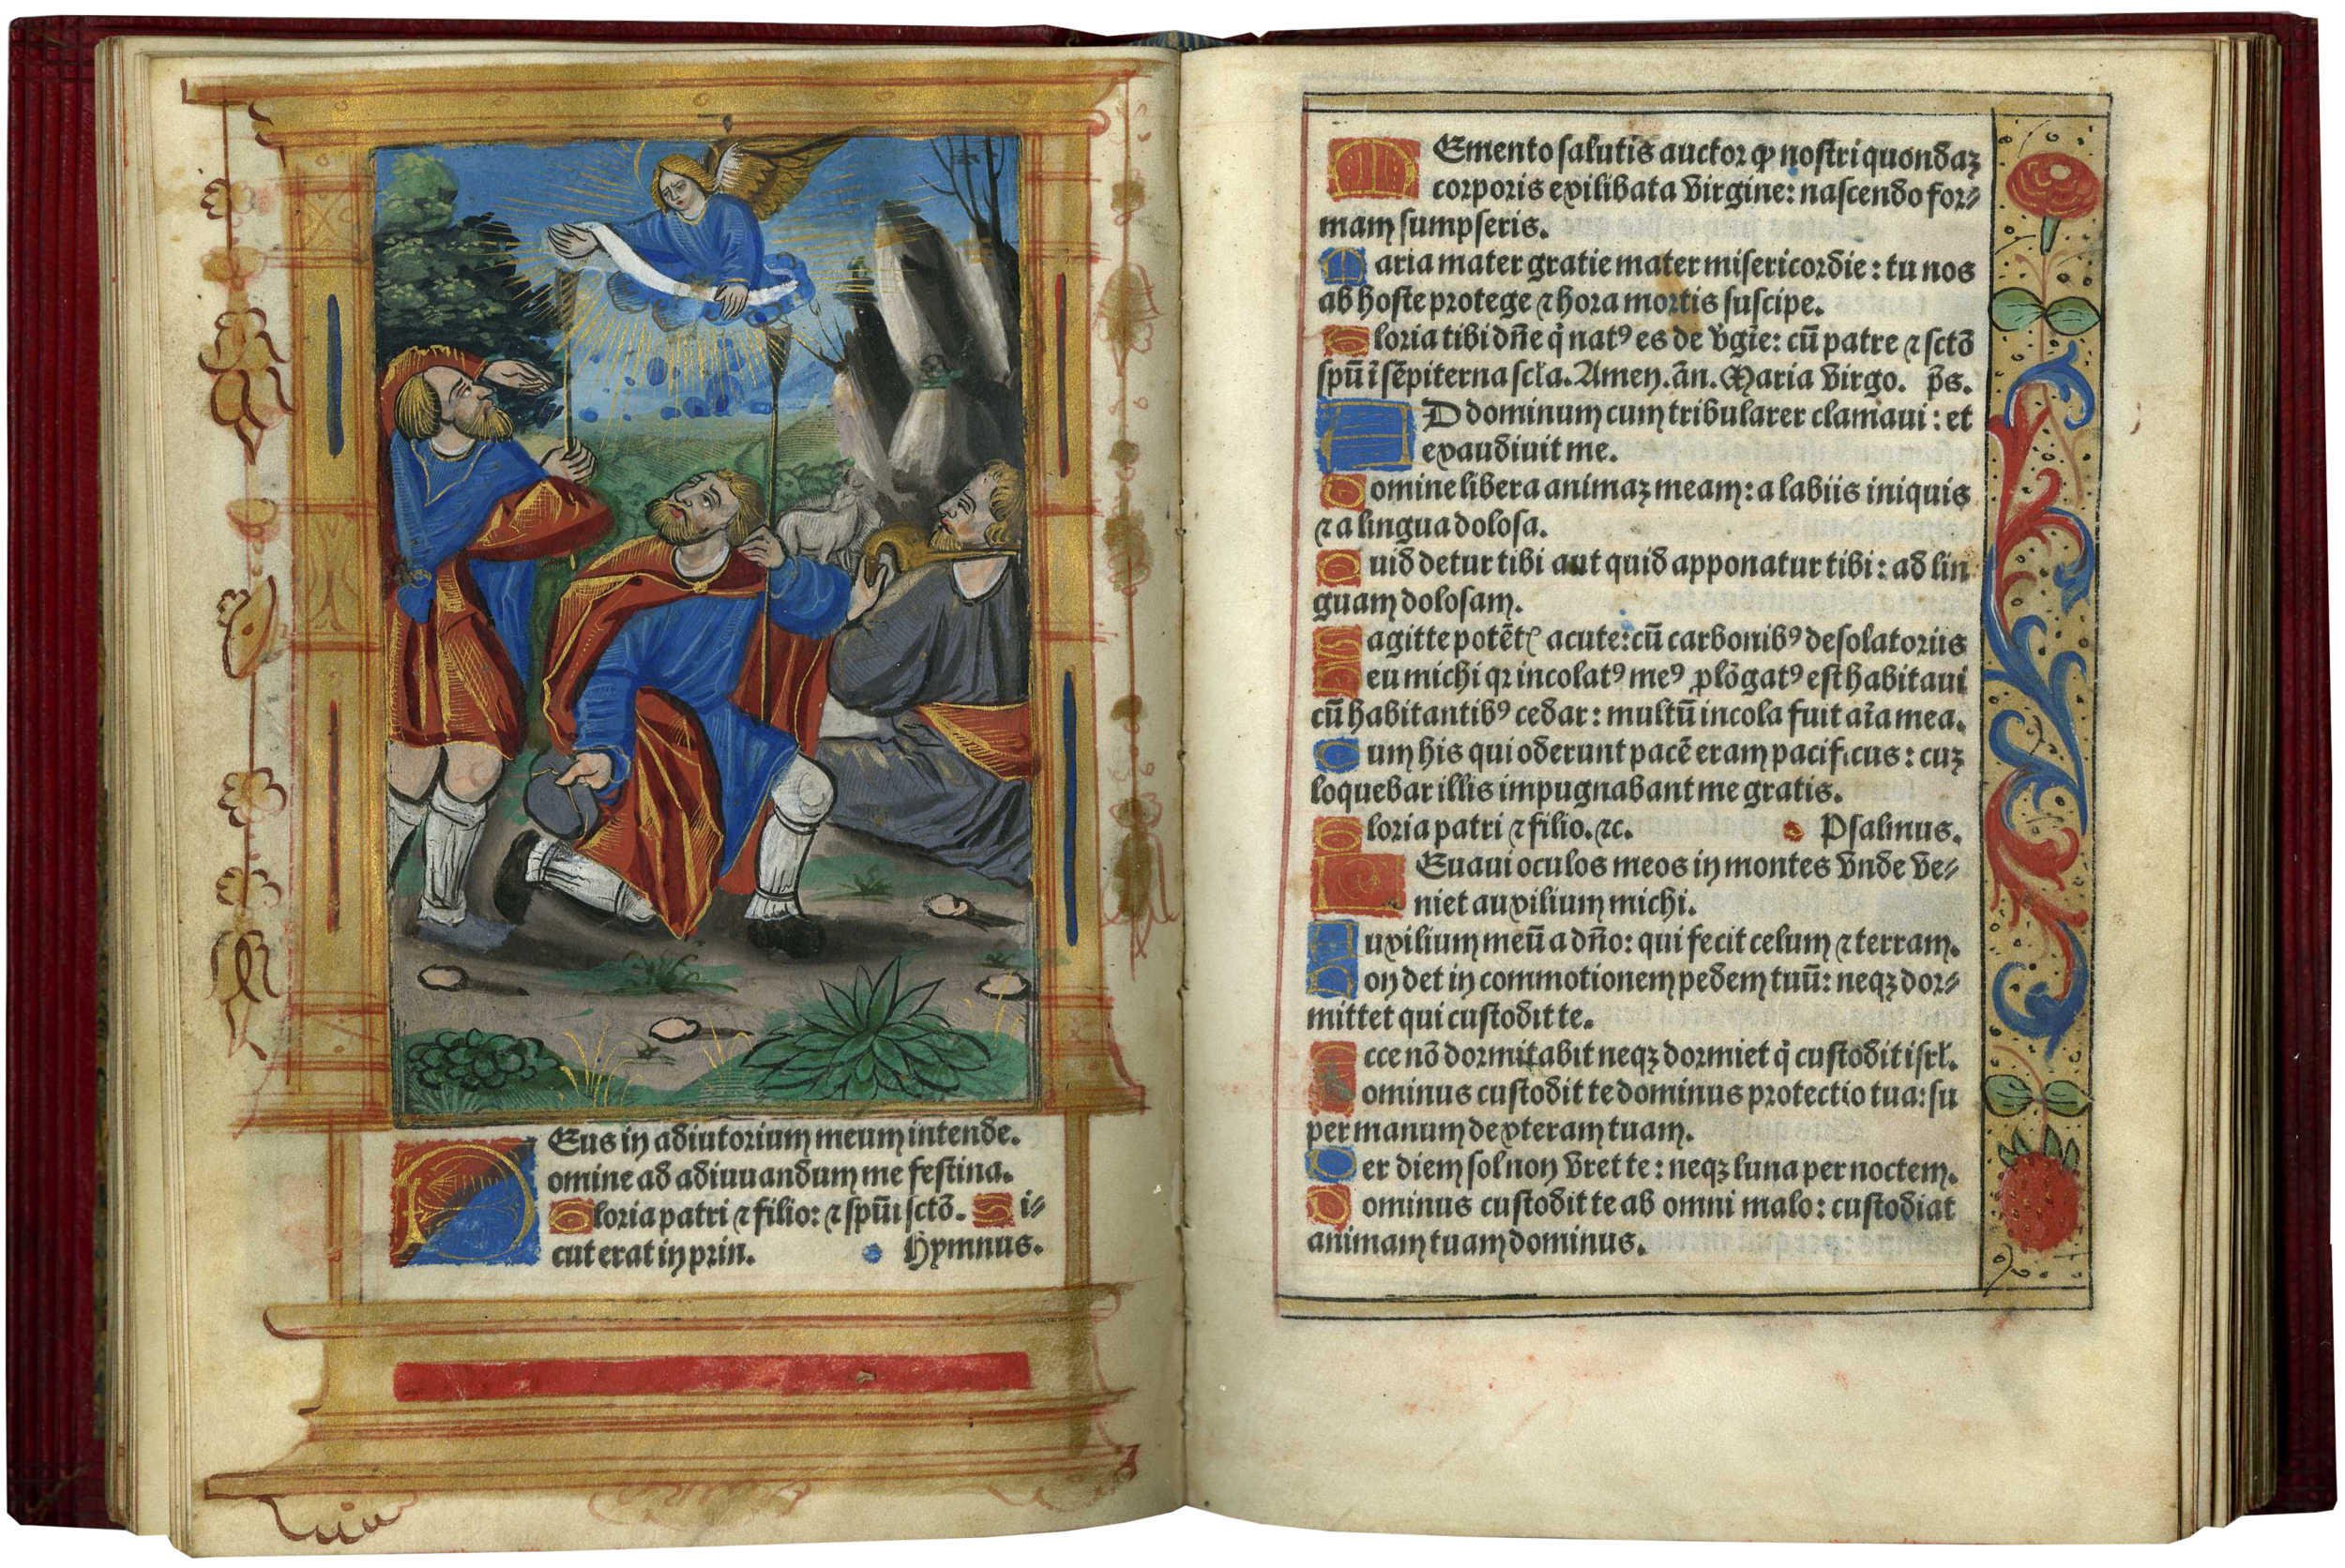 DEus in adiutorium meum intende.
Domine ad adiuuandum me festina.
Gloria patri ⁊ filio: ⁊ spũi sctõ. Si⸗
cut erat in prin. Hymnus.
MEmento salutis auctor ꝙ nostri quondaꝫ
corporis exilibata virgine: nascendo for⸗
mam sumpseris.
Maria mater gratie mater misericordie: tu nos
ab hoste protege ⁊ hora mortis suscipe.
Gloria tibi dñe q̇ natꝰ es de vgĩe: cũ patre ⁊ sctõ
spũ ĩ sẽpiterna scła. Amen. ãn. Maria virgo. p̃s.
AD dominum cum tribularer clamaui: et
exaudiuit me.
Domine libera animaꝫ meam: a labiis iniquis
⁊ a lingua dolosa.
Quid detur tibi aut quid apponatur tibi: ad lin
guam dolosam.
Sagitte potẽtꝭ acute: cũ carbonibꝰ desolatoriis
Heu michi qꝛ incolatꝰ meꝰ ꝓlõgatꝰ est habitaui
cũ habitantibꝰ cedar: multũ incola fuit aĩa mea.
Cum his qui oderunt pacẽ eram pacificus: cuꝫ
loquebar illis impugnabant me gratis.
Gloria patri ⁊ filio. ⁊c. Psalmus.
LEuaui oculos meos in montes vnde ve⸗
niet auxilium michi.
Auxilium meũ a dño: qui fecit celum ⁊ terram.
Non det in commotionem pedem tuũ: neqꝫ dor⸗
mittet qui custodit te.
Ecce nõ dormitabit neqꝫ dormiet q̇ custodit isrł.
Dominus custodit te dominus protectio tua: su
per manum dexteram tuam.
Per diem sol non vret te: neqꝫ luna per noctem.
Dominus custodit te ab omni malo: custodiat
animam tuam dominus.